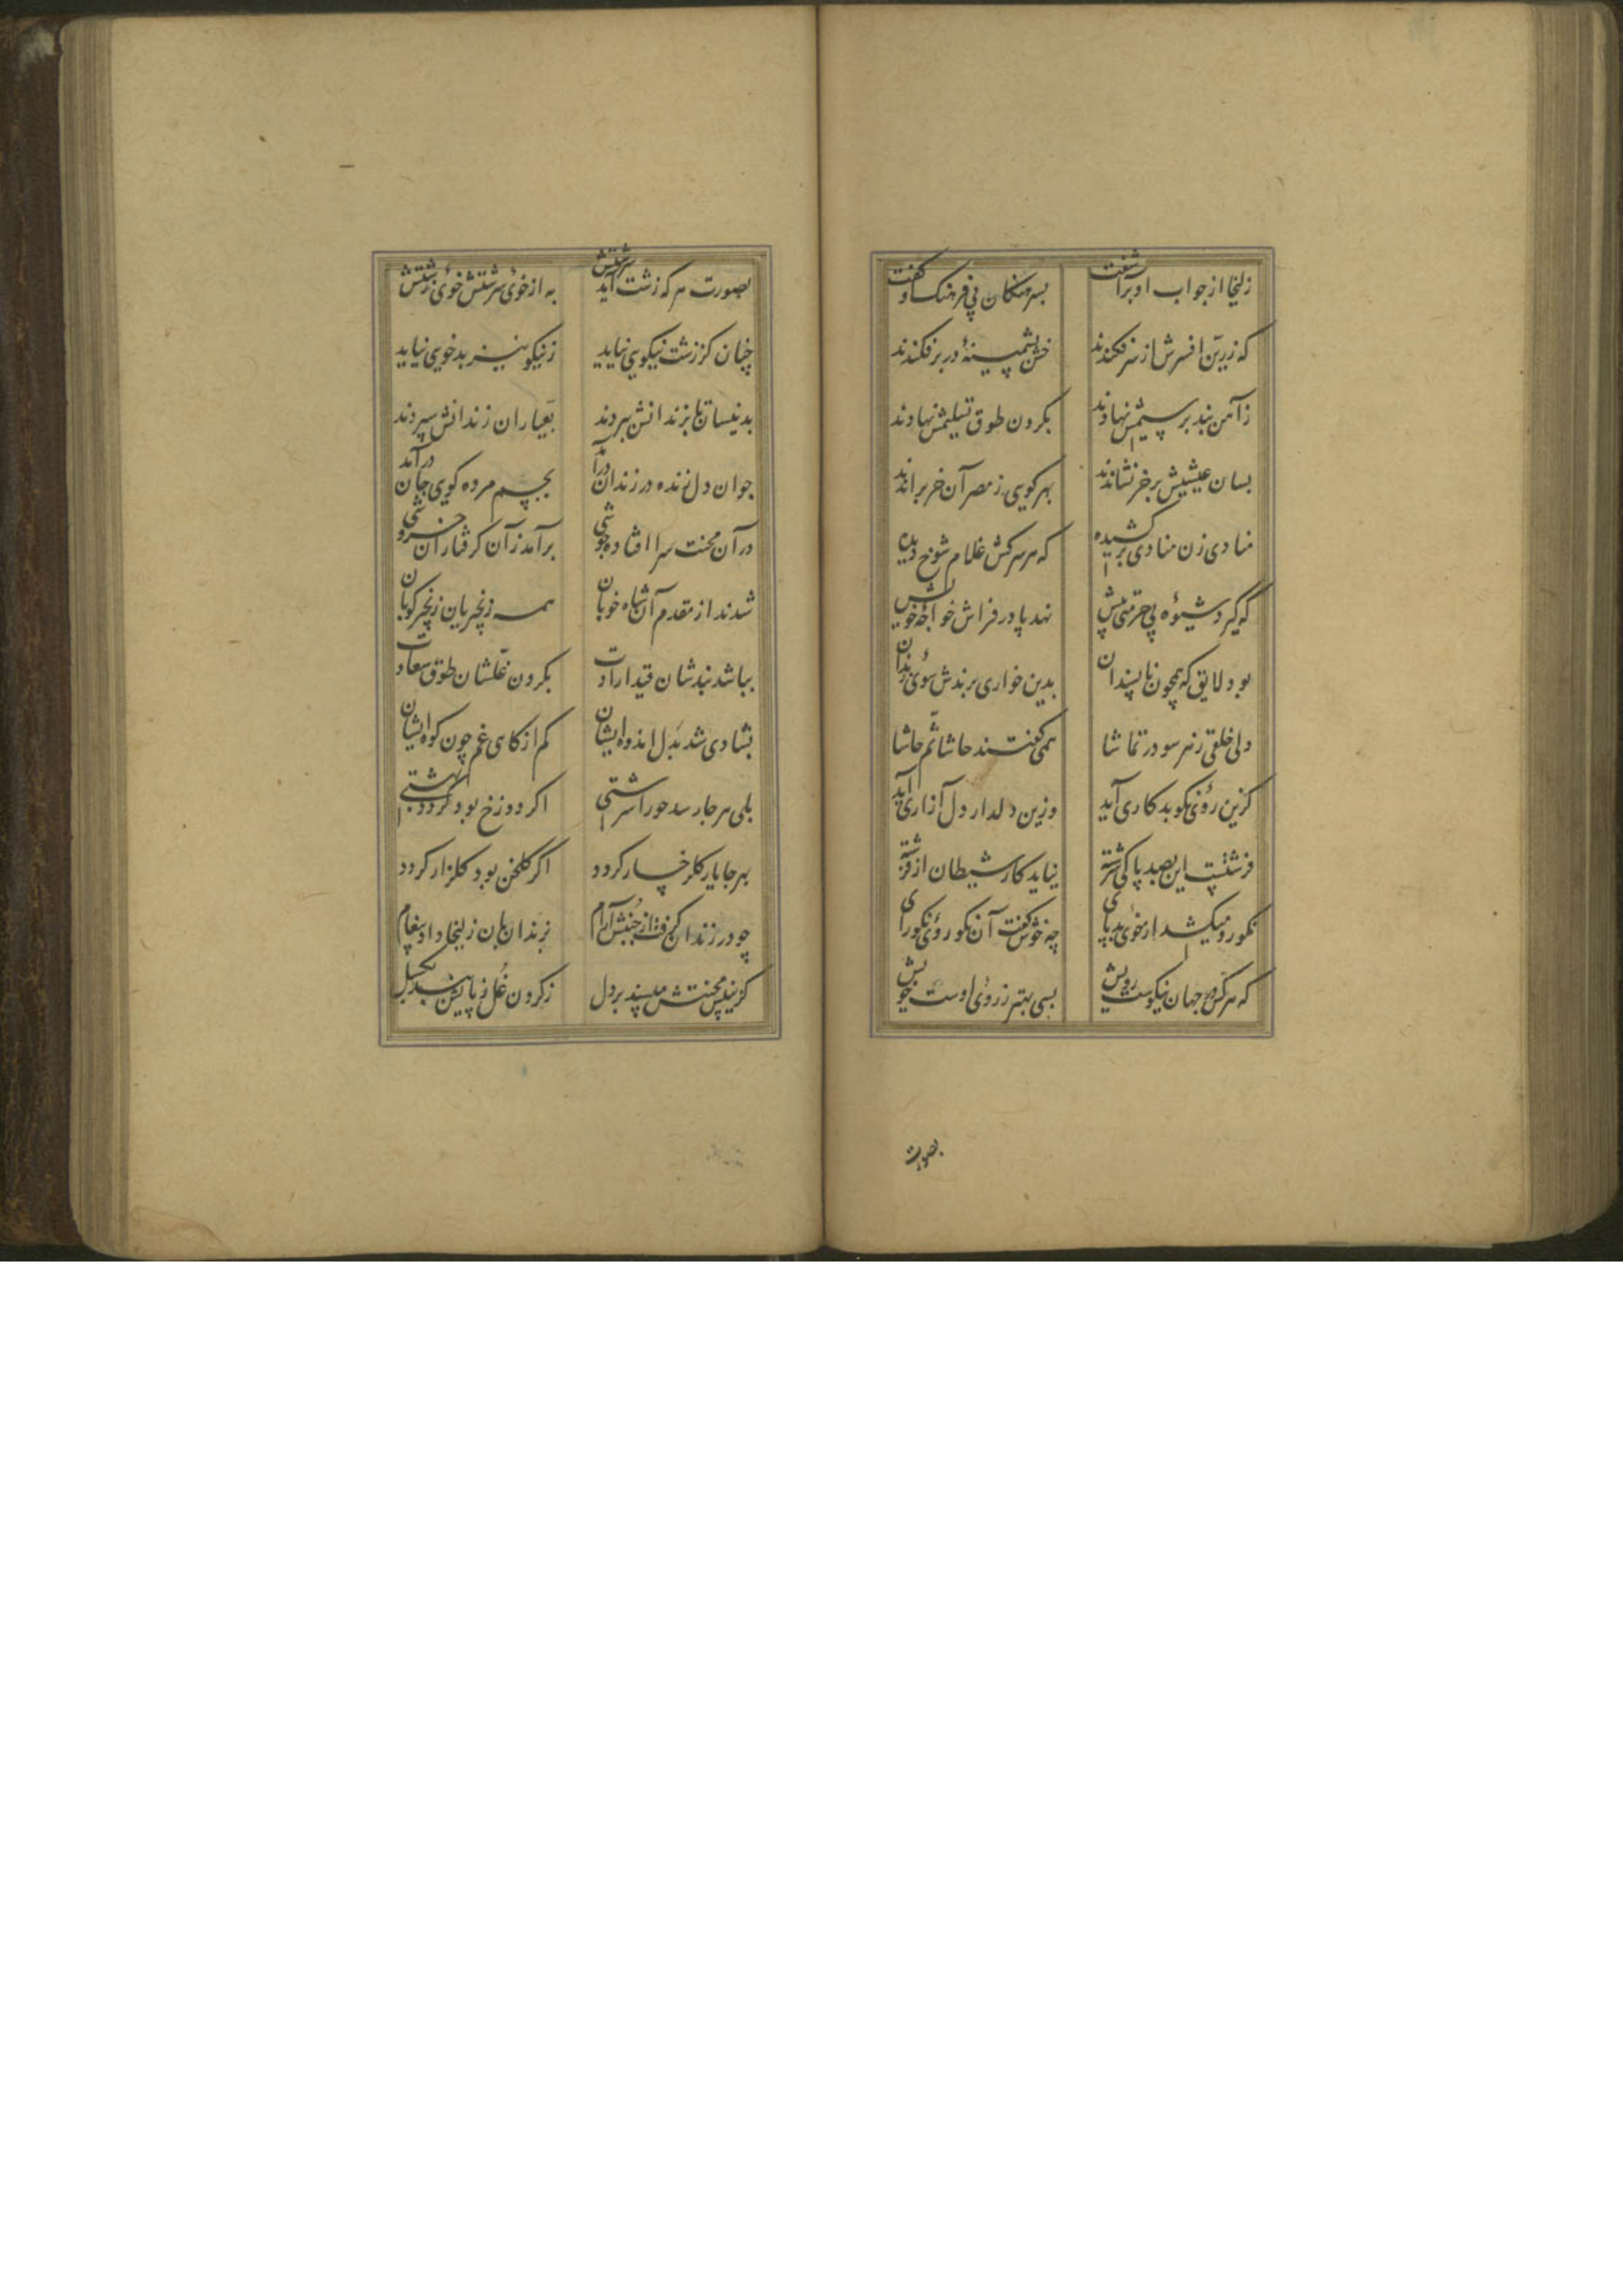 زلیخا از جواب او برآشفت بسرهنگان بی فرهنک او گفت
که زرین افسرش از سر فکندند خشن پشمینهٔ در بر فکندند
ز آهن بند بر سیمش نهادند بگردن طوق تسلیمش نهادند
بسان عیسیش بر خر نشاندند بهر کویی ز مصر آن خر براندند
منادی زن منادی برکشیده که هر سرکش غلام شوخ دیده
که گیرد شیوهٔ بی حرمتی پیش نهد پا در فراش خواجهٔ خویش
بود لایق که همچون ناپسندان بدین خواری برندش سوی زندان
ولی خلقی ز هر سو در تماشا همی گفتند حاشا ثم حاشا
کزین روی نکو بدکاری آید وزین دلدار دل آزاری آید
فرشتست این بصد پاکی سرشته نیاید کار شیطان از فرشته
نکورو میکشد از خوی بد پای چه خوش گفت آن نکوروی نکورای
که هر کس در جهان نیکوست رویش بسی بهتر ز روی اوست خویش
بصورت
بصورت هر که زشت آید سرشتش به از خوی سرشتش خوی زشتش
چنان کز زشت نیکویی نیاید ز نیکو نیز بدخویی نیاید
بدینسان تا بزندانش ببردند بعیاران زندانش سپردند
جوان دل زنده در زندان درآمد بجسم مرده گویی جان درآمد
در آن محنت سرا افتاد جوشی برآمد زآن گرفتاران خروشی
شدند از مقدم آن شاه خوبان همه زنجریان زنجیر کوبان
بپا شد بندشان قید ارادت بگردن غلشان طوق سعادت
بشادی شد بدل اندوه ایشان کم از کاهی غم چون کوه ایشان
بلی هر جا رسد حورا سرشتی اگر دوزخ بود گردد بهشتی
بهر جا یار گلرخسار گردد اگر گلخن بود گلزار گردد
چو در زندان گرفت از جنبش آرام بزندان بان زلیخا داد پیغام
کزین پس محنتش مپسند بر دل ز گردن غل ز پایش بند بگسل